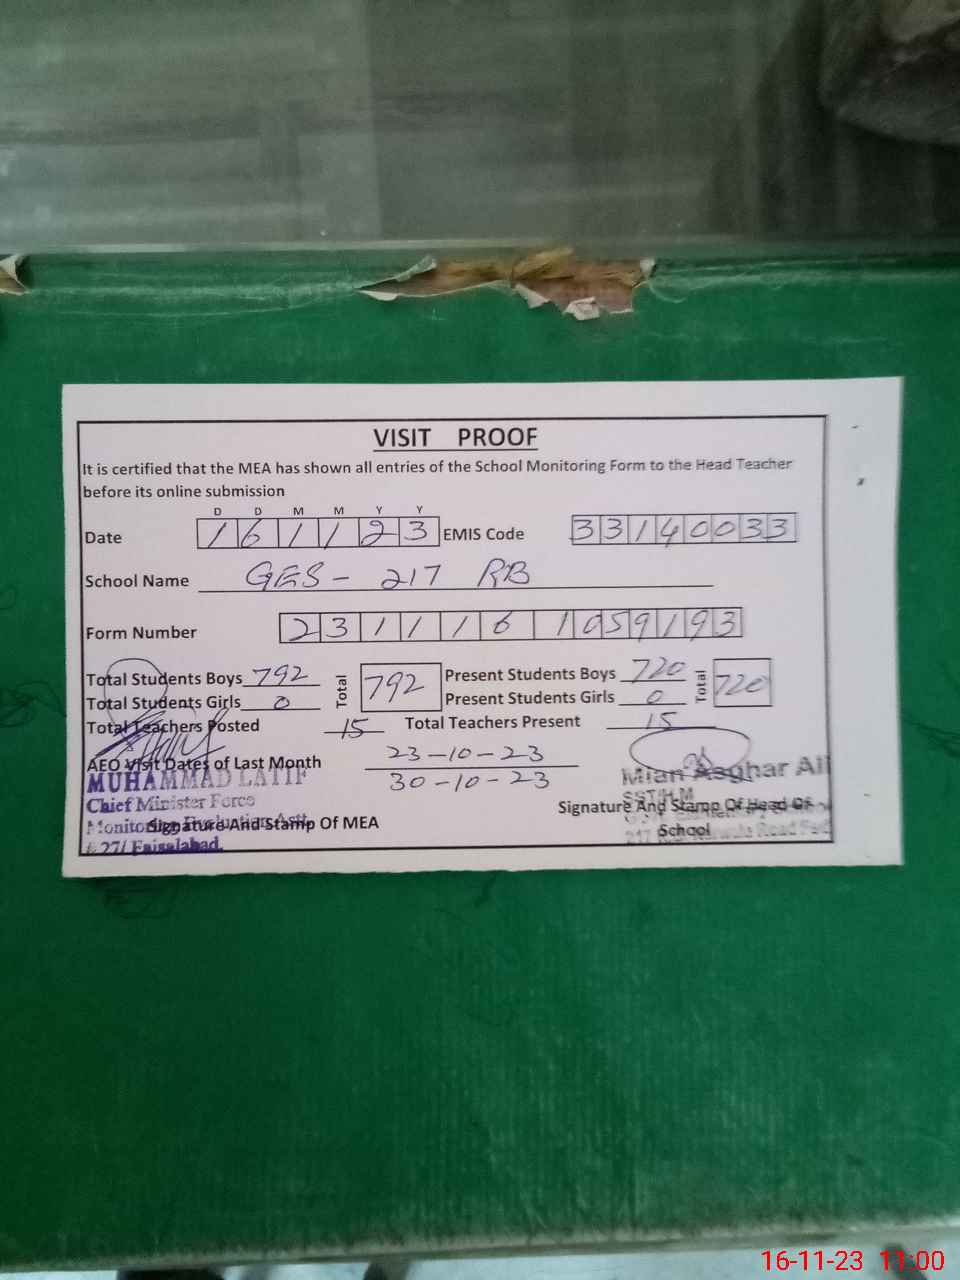 VISIT PROOF
It is certified that the MEA has shown all entries of the School Monitoring Form to the Head Teacher
before its online submission
D D M M Y Y
Date 1 6 1 1 2 3 EMIS Code 3 3 1 4 0 0 3 3
School Name GES - 217 RB
Form Number 2 3 1 1 1 6 1 0 5 9 1 9 3
Total Students Boys 792 Total 792 Present Students Boys 720 Total 720
Total Students Girls 0 Present Students Girls 0
Total Teachers Posted 15 Total Teachers Present 15
AEO Visit Dates of Last Month 23-10-23
30-10-23
MUHAMMAD LATIF
Chief Minister Force
Monitoring Evaluation
Faisalabad.
Signature And Stamp Of MEA
Mian Asghar Ali
SST/H.M
Signature And Stamp Of Head Of
School
217 Road
16-11-23 11:00